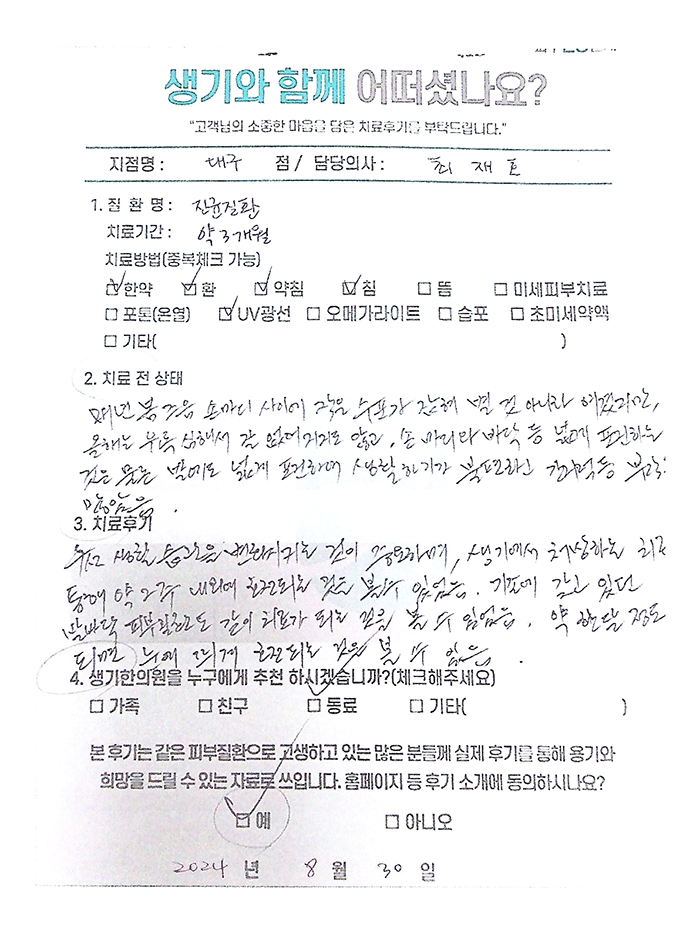 생기와 함께 어떠셨나요?
"고객님의 소중한 마음을 담은 치료후기를 부탁드립니다."
지점명 : 대구 점 / 담당의사 : 최재호
1. 질 환 명 : 진균질환
치료기간 : 약 3개월
치료방법(중복체크 가능)
☑ 한약 ☑ 환 ☑ 약침 ☑ 침 ☐ 뜸 ☐ 미세피부치료
☐ 포톤(온열) ☑ UV광선 ☐ 오메가라이트 ☐ 슬포 ☐ 초미세약액
☐ 기타( )
2. 치료 전 상태
매년 봄 즈음 손마디 사이에 작은 수포가 잡혀 별 것 아니라 여겼지만,
올해는 유독 심해서 잘 없어지지도 않고, 손 마디와 바닥 등 넓게 표진하는
것은 물론 발에도 넓게 표진하여 생활하기가 불편하고
많았음.
3. 치료후기
우선 생활 습관을 변화시키는 것이 중요하며, 생기에서 처방하는 치료
통해 약 2주 내외에 호전되는 것을 볼 수 있었음. 기존에 갖고 있던
발바닥 피부질환도 같이 치료가 되는 것을 볼 수 있었음. 약 한달 정도
되면 눈에 띄게 호전되는 것을 볼 수 있음.
4. 생기한의원을 누구에게 추천 하시겠습니까?(체크해주세요)
☐ 가족 ☐ 친구 ☑ 동료 ☐ 기타( )
본 후기는 같은 피부질환으로 고생하고 있는 많은 분들께 실제 후기를 통해 용기와
희망을 드릴 수 있는 자료로 쓰입니다. 홈페이지 등 후기 소개에 동의하시나요?
☑ 예 ☐ 아니오
2024 년 8 월 30 일